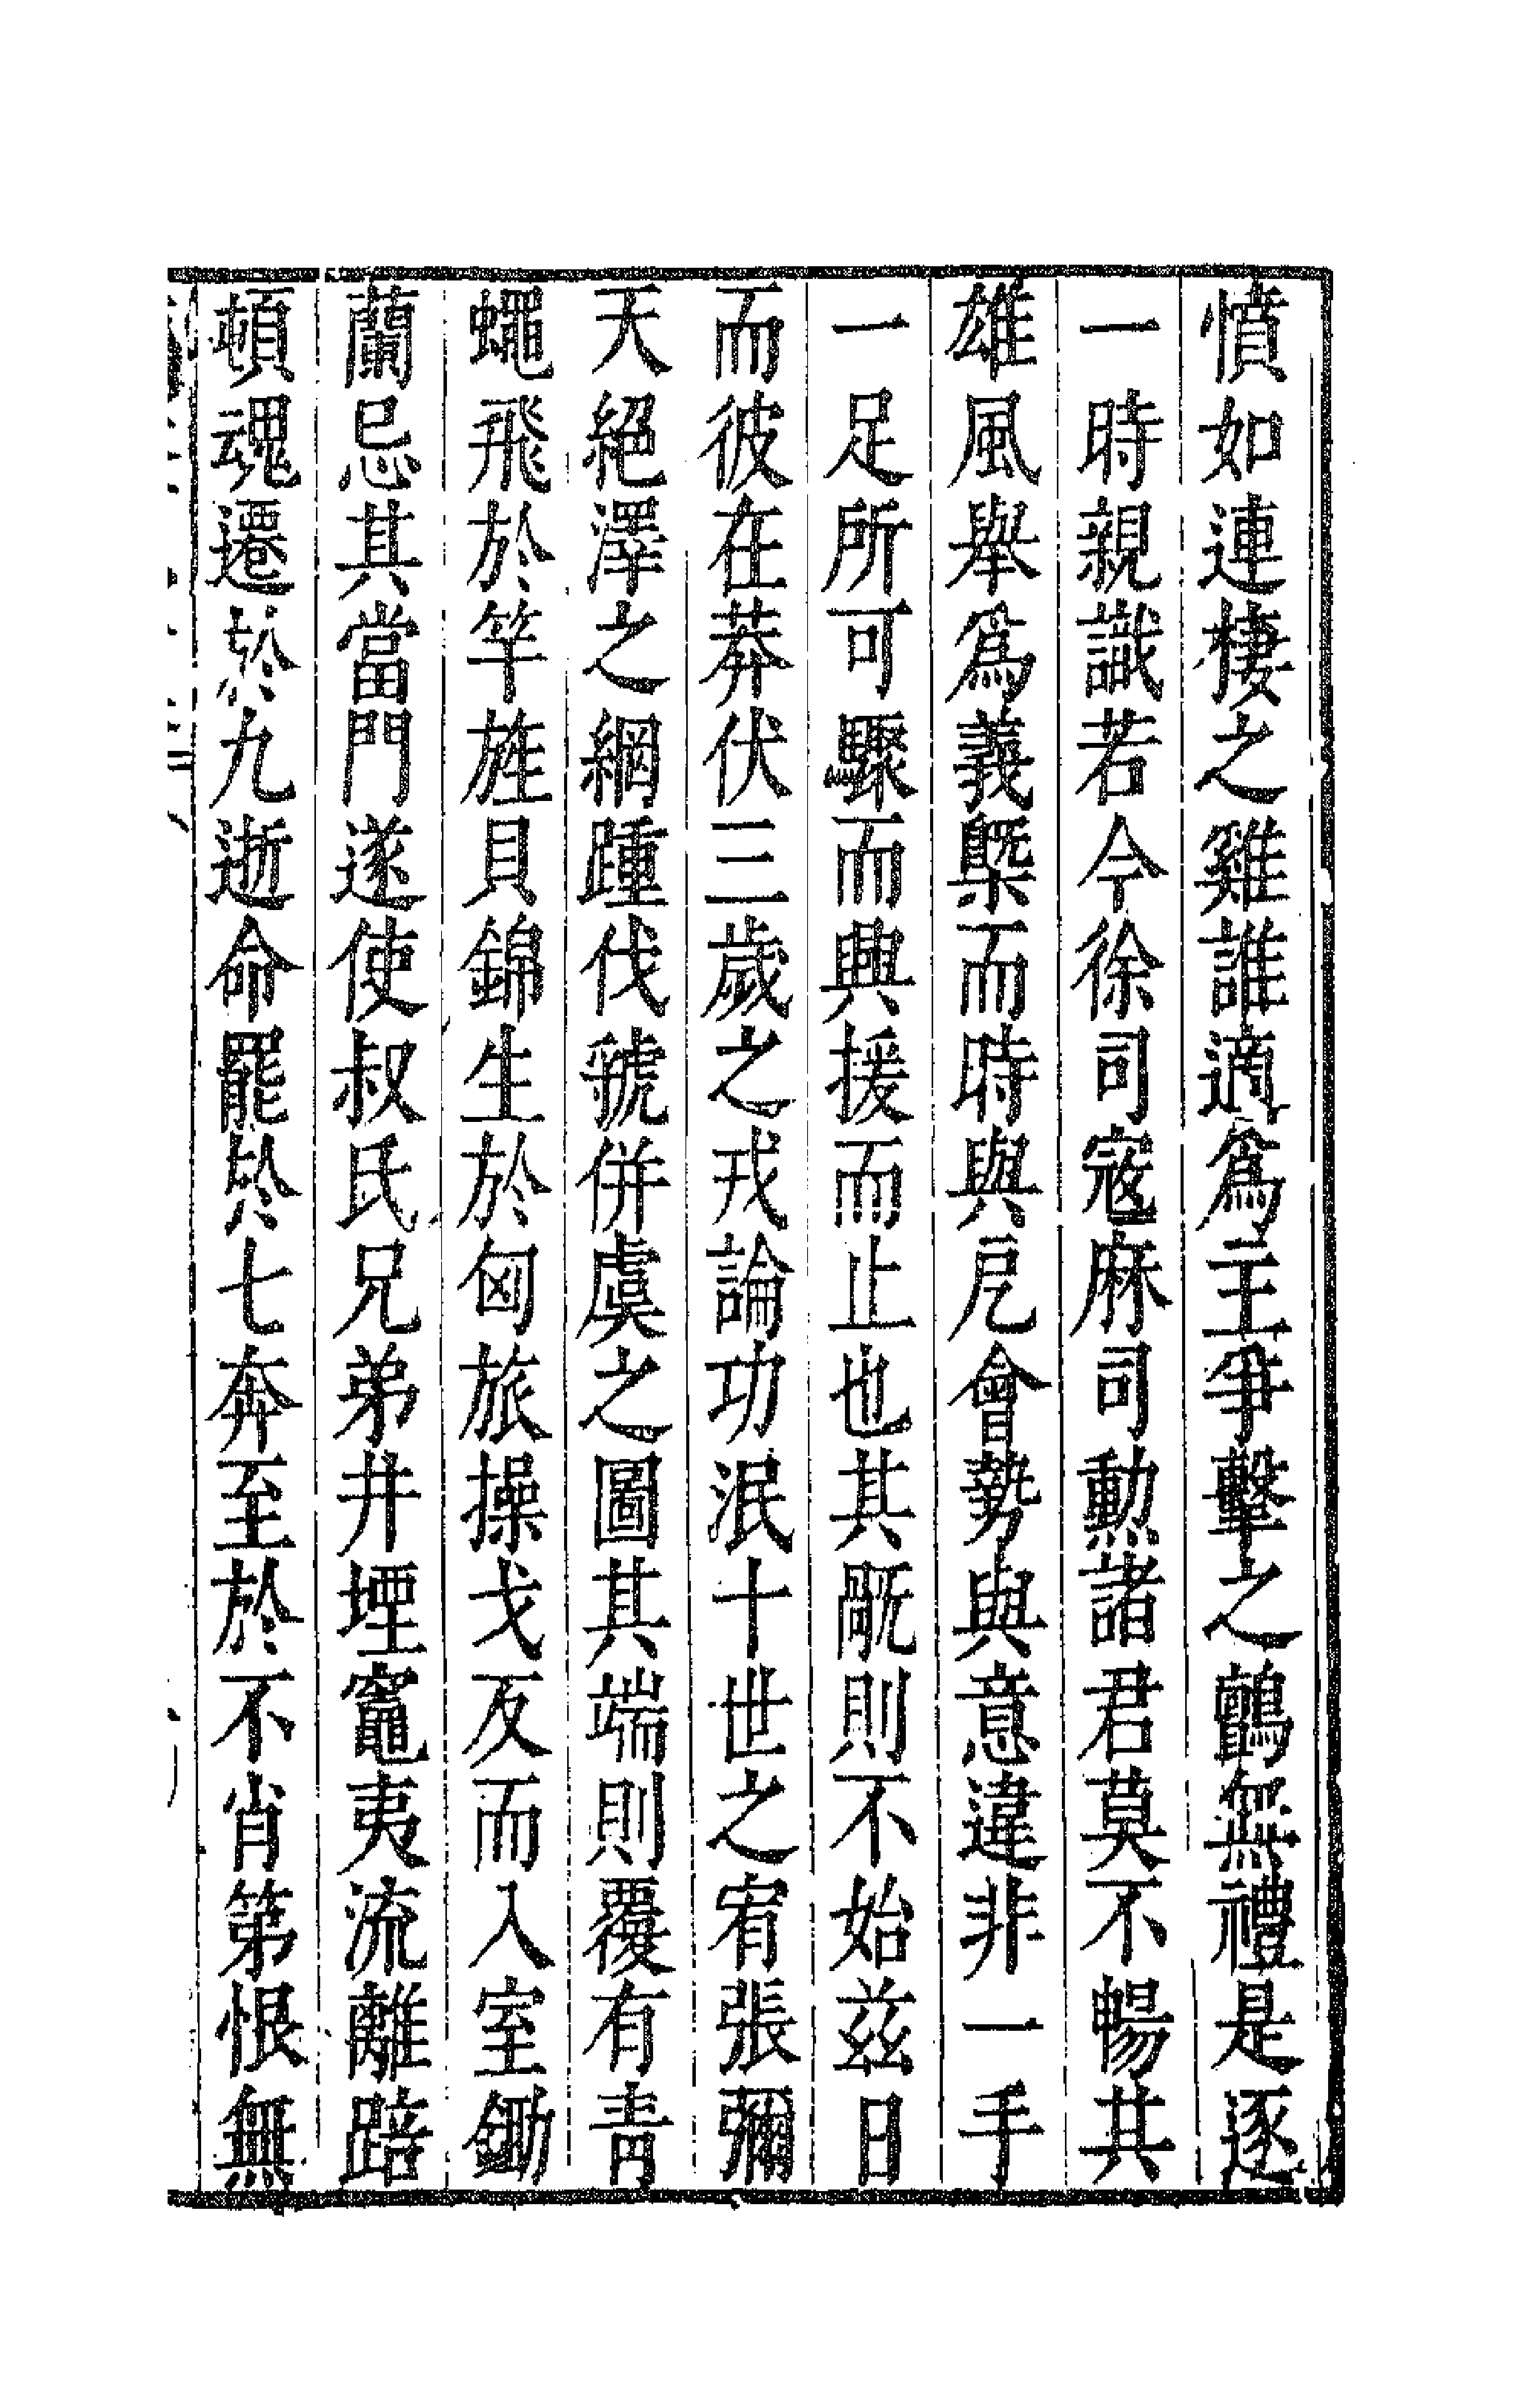 憤如連棲之雞誰適爲主爭擊之鸇無禮是逐
一時親識若今徐司寇麻司勳諸君莫不暢其
雄風舉爲義槩而時與戹會勢與意違非一手
一足所可驟而興援而止也其厩則不始茲日
而彼在莽伏三歲之戎論功泯十世之宥張彌
天絕澤之網踵伐虢併虞之圖其端則覆有靑
蠅飛於竿旌貝錦生於匈旅操戈反而入室鋤
蘭忌其當門遂使叔氏兄弟井堙竈夷流離踣
頓魂遷於九逝命罷於七奔至於不肖第恨無